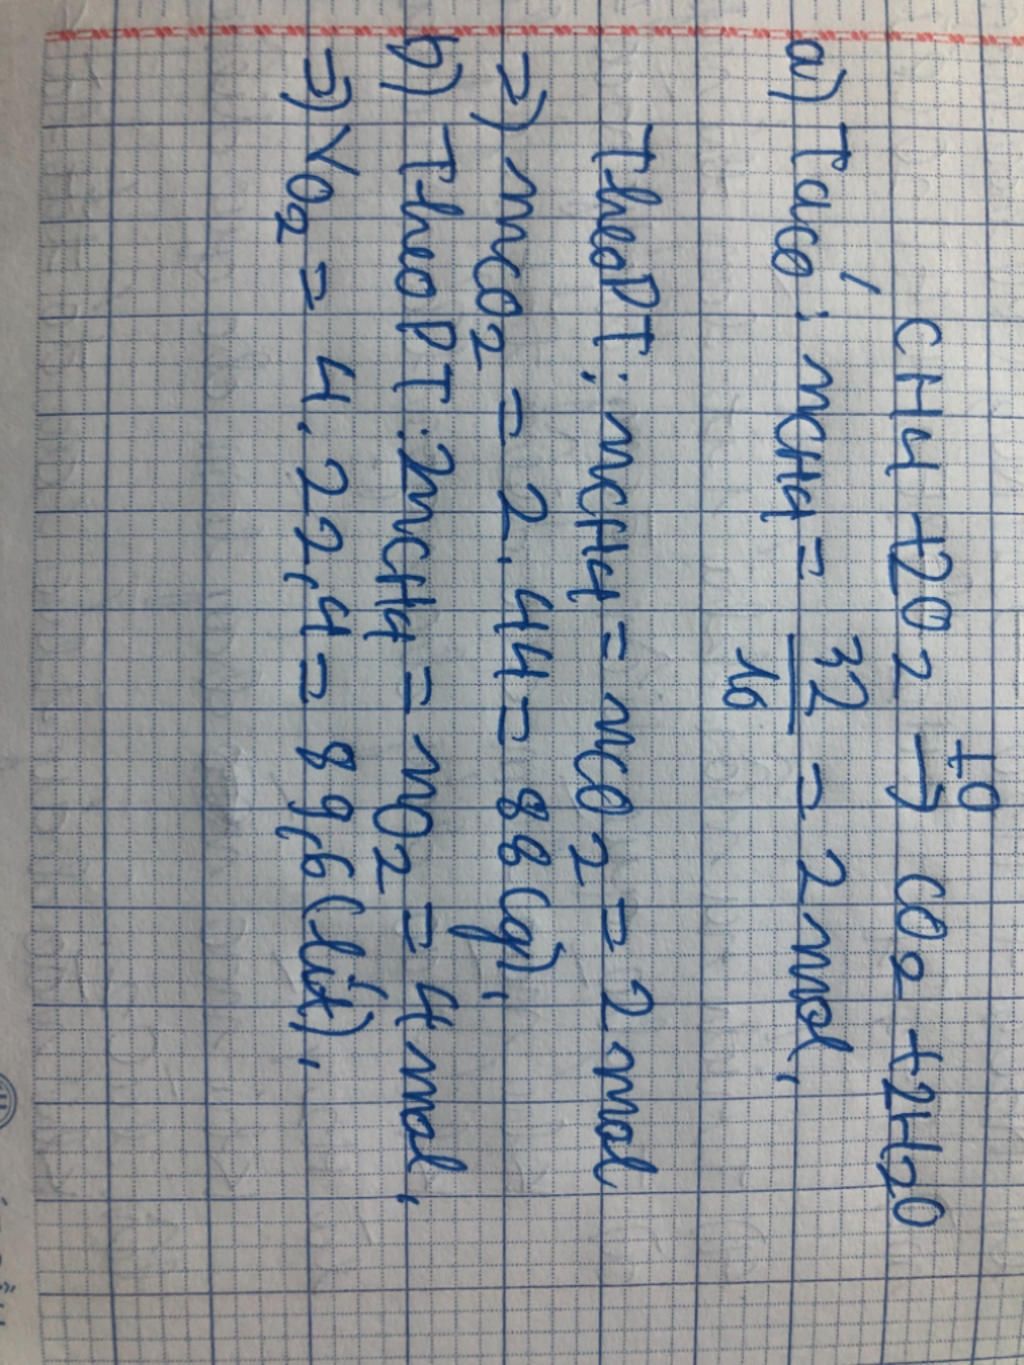 t0
CH4 +2O2 → CO2 +2H2O
a) Ta có: nCH4 = 32/16 = 2 mol,
Theo PT: nCH4 = nCO2 = 2 mol
=) mCO2 = 2.44 = 88(g),
b) Theo PT: 2nCH4 = nO2 = 4 mol,
=) VO2 = 4.22,4 = 89,6(lít),